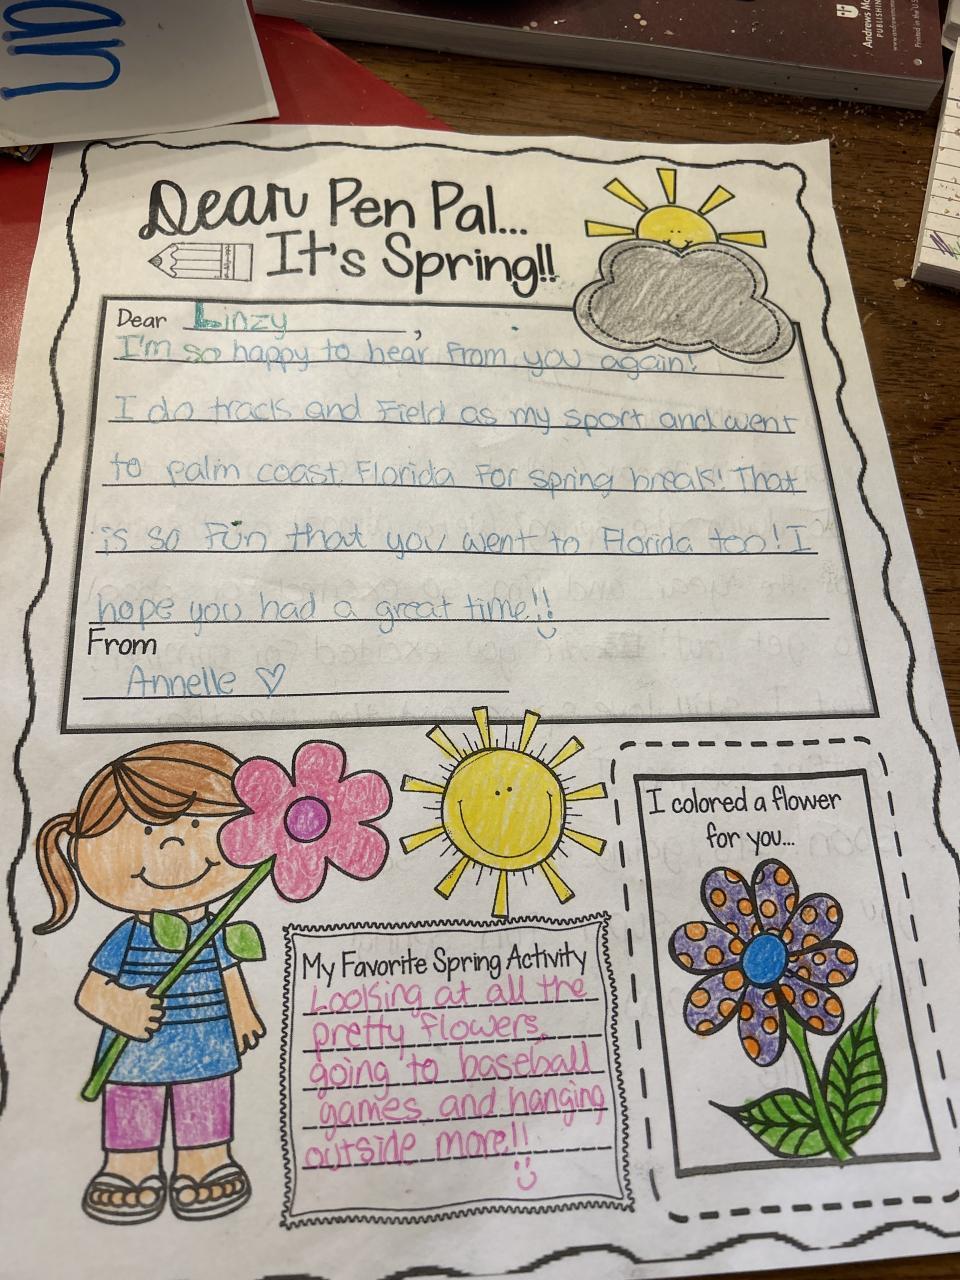 an
Andrews Mc
PUBLISHING
Printed in the U.S
Dear Pen Pal...
It's Spring!!
Dear Linzy,
I'm so happy to hear from you again!
I do track and Field as my sport and went
to palm coast Florida For spring break! That
is so Fun that you went to Florida too! I
hope you had a great time!!
From
Annelle
I colored a flower
for you...
My Favorite Spring Activity
Looking at all the
pretty flowers,
going to baseball
games, and hanging
outside more!!